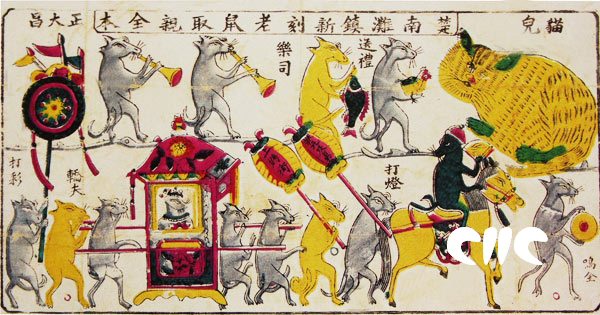 貓兒
楚南灘鎮新刻老鼠取親全本
正大昌
送禮
樂司
打燈
轎夫
打彩
鳴金
CNC